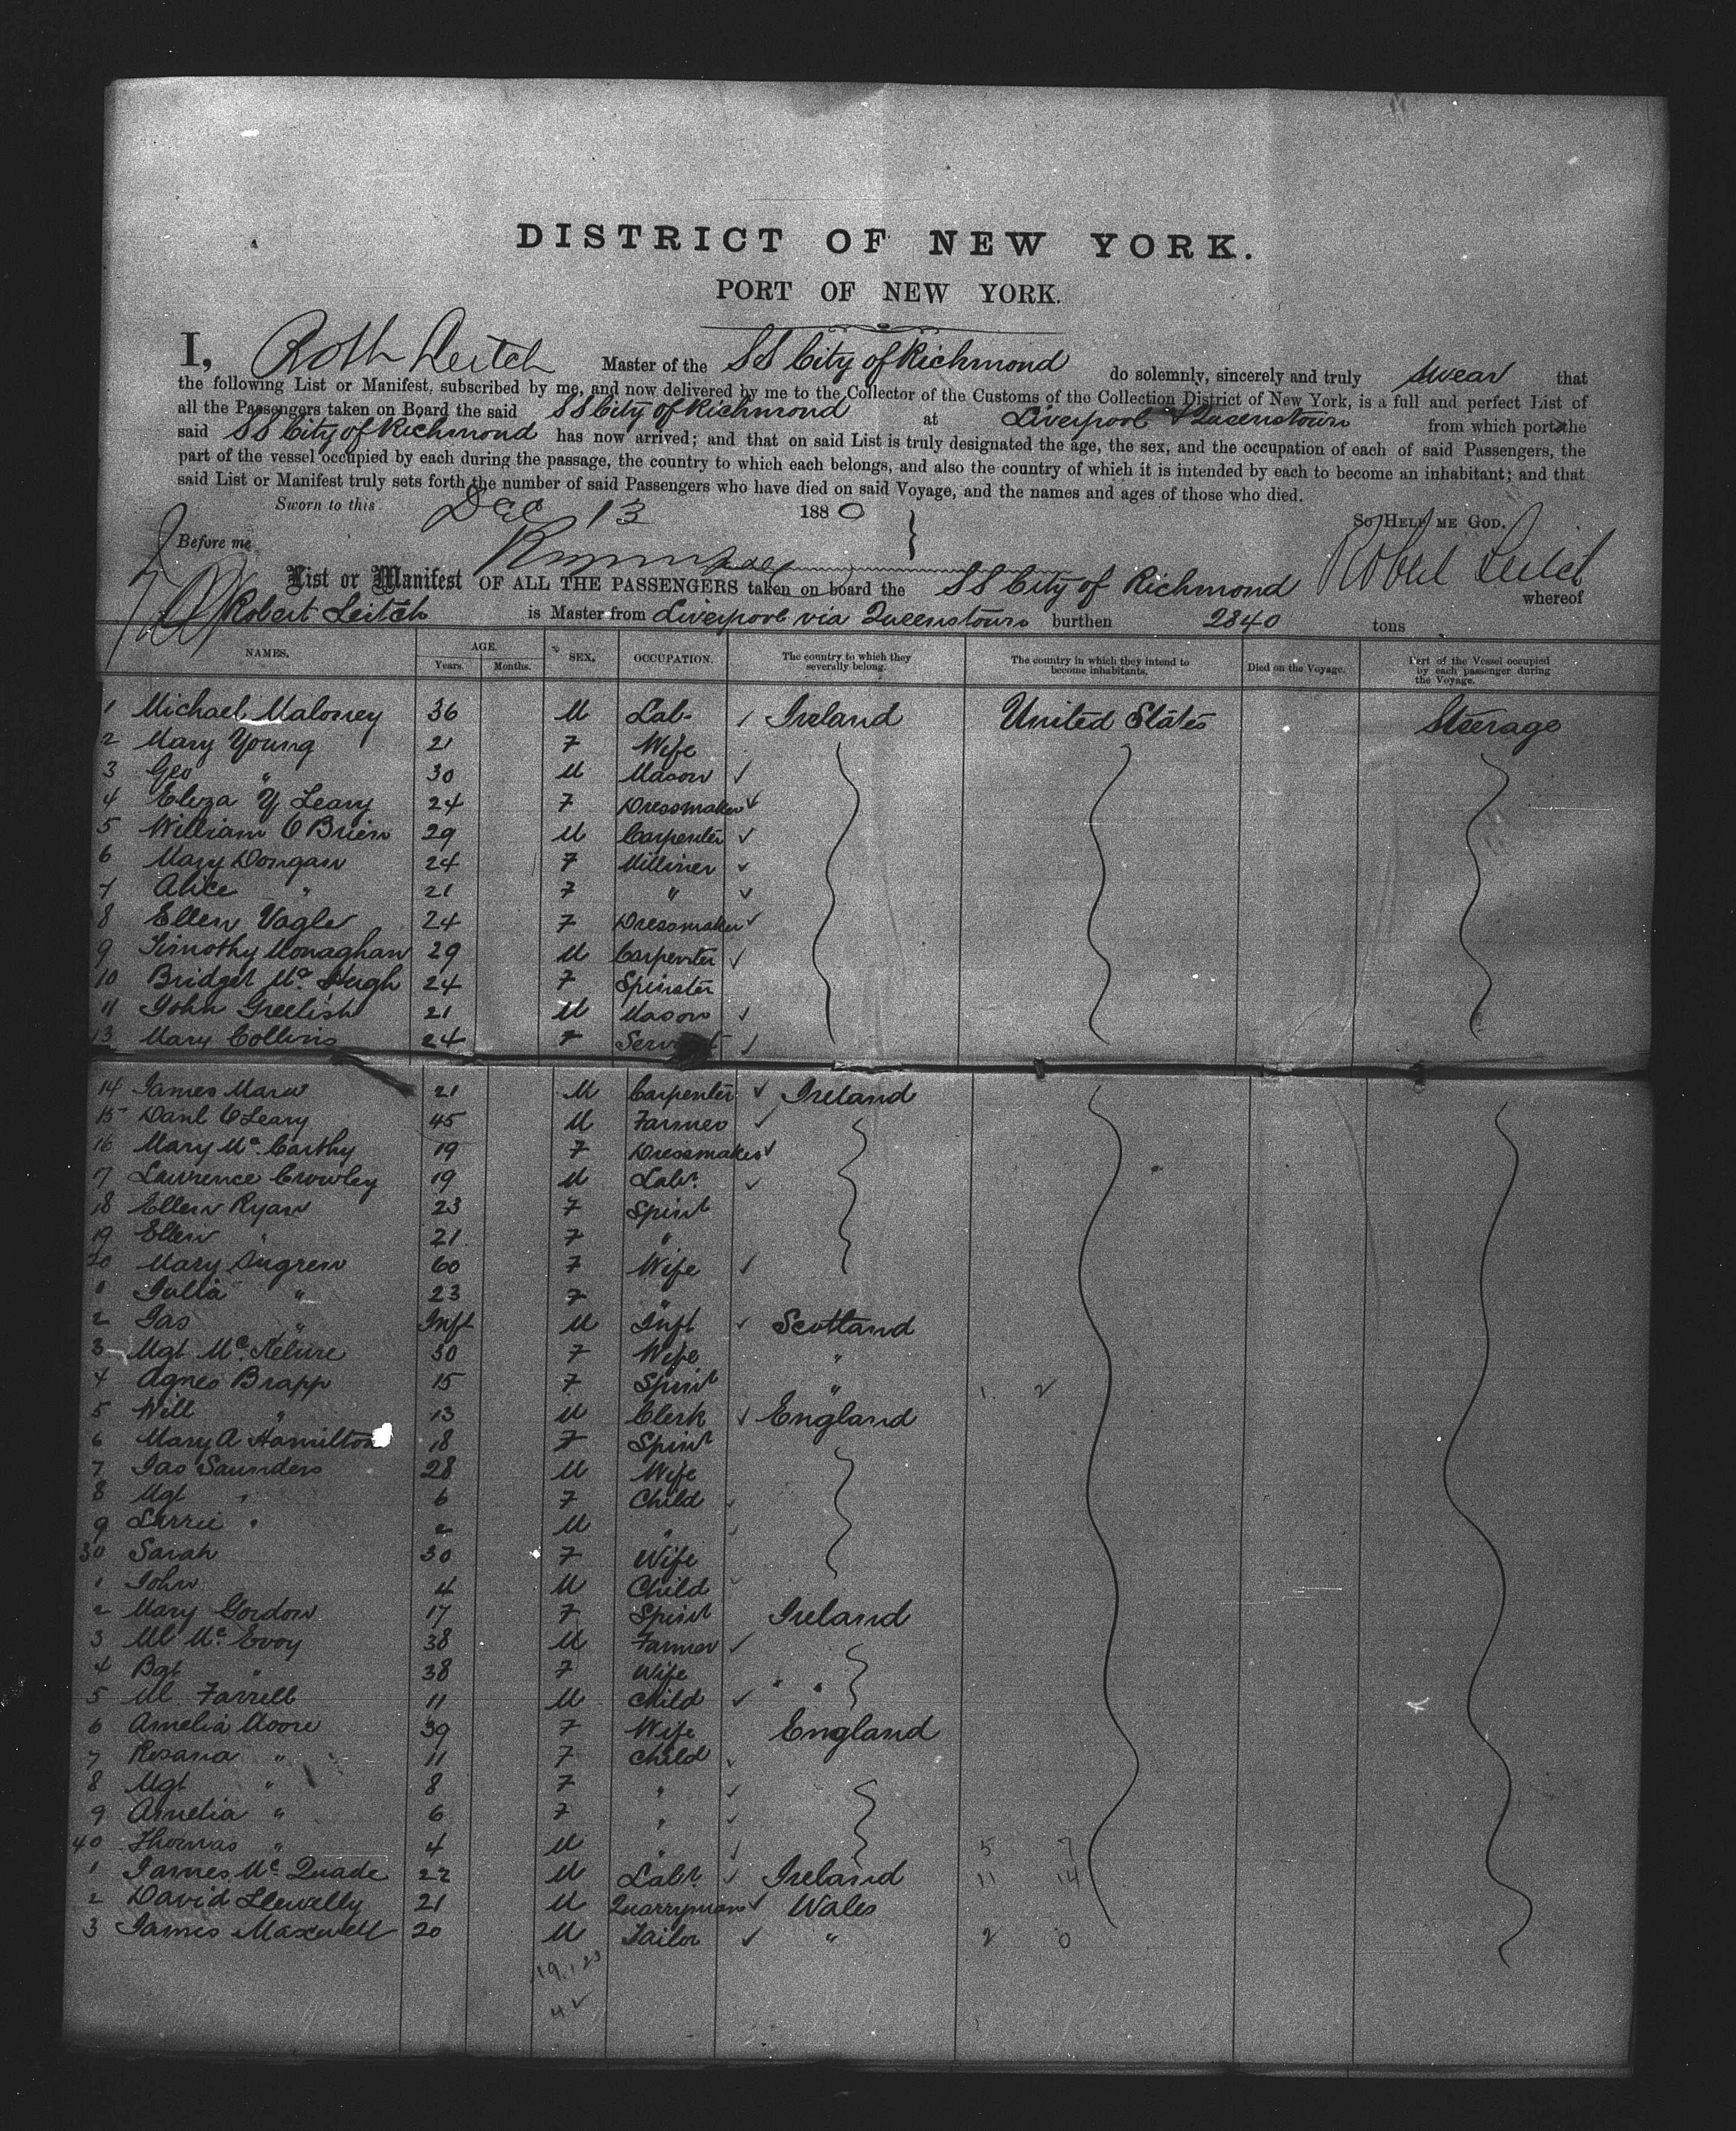 DISTRICT OF NEW YORK.
PORT OF NEW YORK.
I, Robt Leitch Master of the SS City of Richmond do solemnly, sincerely and truly swear that
the following List or Manifest, subscribed by me, and now delivered by me to the Collector of the Customs of the Collection District of New York, is a full and perfect List of
all the Passengers taken on Board the said SS City of Richmond at Liverpool & Queenstown from which port the
said SS City of Richmond has now arrived; and that on said List is truly designated the age, the sex, and the occupation of each of said Passengers, the
part of the vessel occupied by each during the passage, the country to which each belongs, and also the country of which it is intended by each to become an inhabitant; and that
said List or Manifest truly sets forth the number of said Passengers who have died on said Voyage, and the names and ages of those who died.
Sworn to this Dec 13 1880 So Help me God.
Before me Robert Leitch
List or Manifest OF ALL THE PASSENGERS taken on board the SS City of Richmond whereof
Robert Leitch is Master from Liverpool via Queenstown burthen 2840 tons
NAMES. AGE. Years. Months. SEX. OCCUPATION. The country to which they severally belong. The country in which they intend to become inhabitants. Died on the Voyage. Part of the Vessel occupied by each passenger during the Voyage.
1 Michael Maloney 36 M Lab. Ireland United States Steerage
2 Mary Young 21 F Wife
3 Geo " 30 M Mason
4 Eliza Y Leary 24 F Dressmaker
5 William O Brien 29 M Carpenter
6 Mary Dongan 24 F Milliner
7 Alice " 21 F "
8 Ellen Nagle 24 F Dressmaker
9 Timothy Monaghan 29 M Carpenter
10 Bridget Mc Hugh 24 F Spinster
11 John Greelish 21 M Mason
13 Mary Collins 24 F Servant
14 James Mara 21 M Carpenter Ireland
15 Danl O Leary 45 M Farmer
16 Mary Mc Carthy 19 F Dressmaker
17 Lawrence Crowley 19 M Labr.
18 Ellen Ryan 23 F Spinst
19 Ellen " 21 F "
20 Mary 60 F Wife
1 Julia " 23 F "
2 Jas " Inft M Inft Scotland
3 Mgt Mc Kelure 30 F Wife "
4 Agnes Brapp 15 F Spinst " 1. 2
5 Will " 13 M Clerk England
6 Mary A Hamilton 18 F Spinst
7 Jas Saunders 28 M Wife
8 Mgt " 6 F Child
9 Lizzie " 2 M "
30 Sarah 30 F Wife
1 John 4 M Child
2 Mary Gordon 17 F Spinst Ireland
3 Ml Mc Evoy 38 M Farmer
4 Bgt " 38 F Wife
5 Ml Farrell 11 M Child " "
6 Amelia Moore 39 F Wife England
7 Rosana " 11 F Child
8 Mgt " 8 F "
9 Amelia " 6 F "
40 Thomas " 4 M " 5 7
1 James Mc Quade 22 M Labr Ireland 11 14
2 David Llewelly 21 M Quarryman Wales
3 James Maxwell 20 M Tailor " 2 0
19. 1 23
42